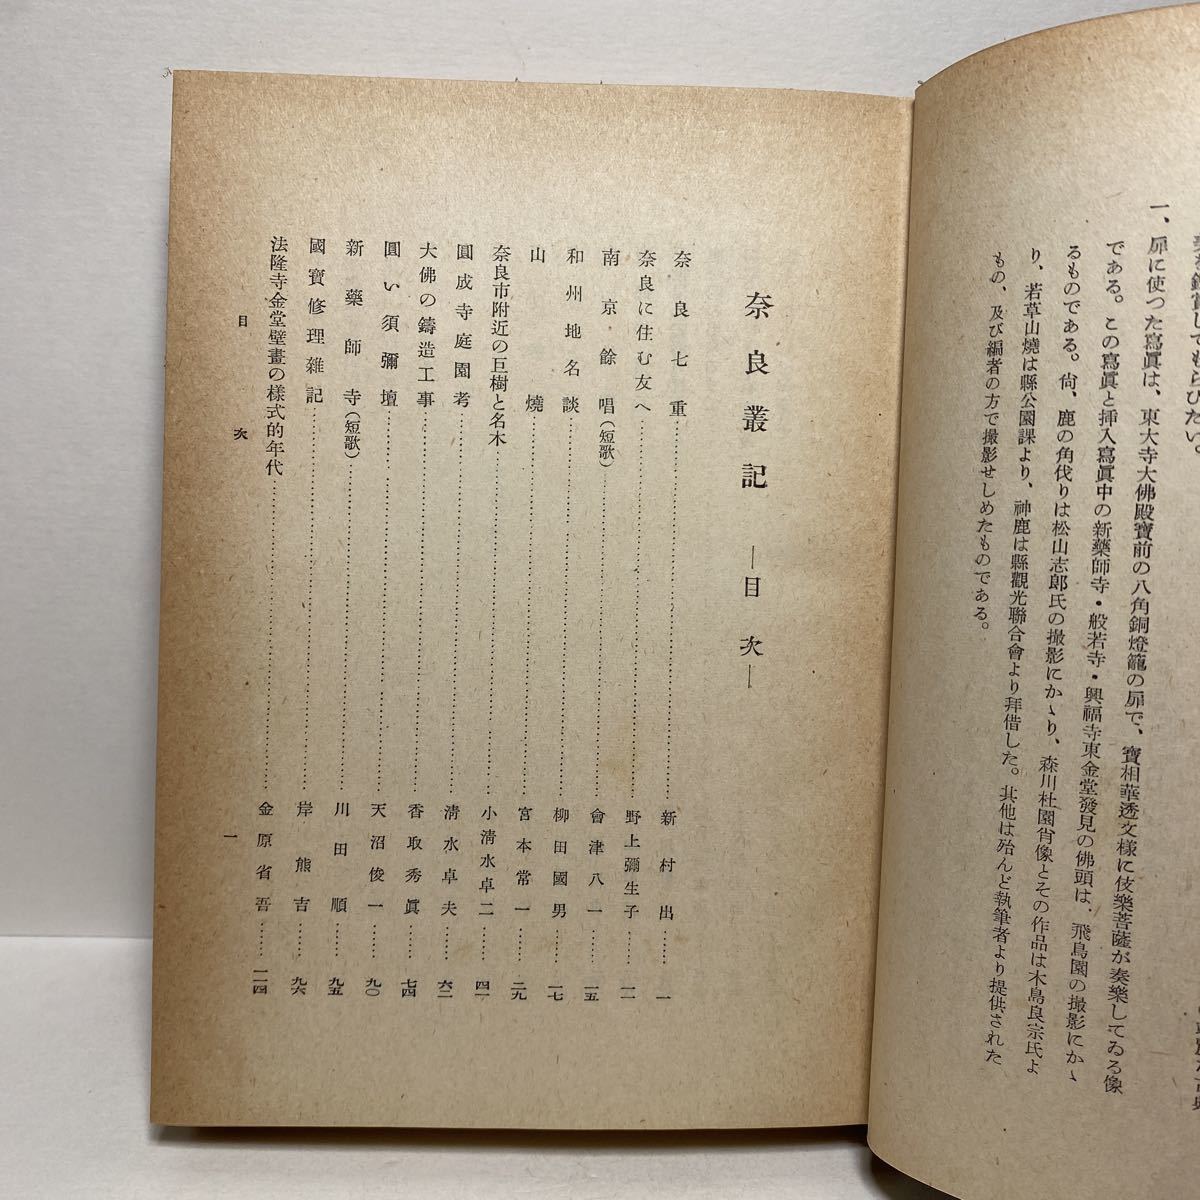 一、扉に使つた寫眞は、東大寺大佛殿寶前の八角銅燈籠の扉で、寶相華透文樣に伎樂菩薩が奏樂してゐる像
である。この寫眞と挿入寫眞中の新藥師寺・般若寺・興福寺東金堂發見の佛頭は、飛鳥園の撮影にかゝ
るものである。尙、鹿の角伐りは松山志郎氏の撮影にかゝり、森川杜園肖像とその作品は木島良宗氏よ
り、若草山燒は縣公園課より、神鹿は縣觀光聯合會より拜借した。其他は殆んど執筆者より提供された
もの、及び編者の方で撮影せしめたものである。
奈良叢記 ―目次―
奈良七重……新村出……一
奈良に住む友へ……野上彌生子……一一
南京餘唱(短歌)……會津八一……一五
和州地名談……柳田國男……一七
山燒……宮本常一……二九
奈良市附近の巨樹と名木……小淸水卓二……四一
圓成寺庭園考……淸水卓夫……六二
大佛の鑄造工事……香取秀眞……七四
圓い須彌壇……天沼俊一……九〇
新藥師寺(短歌)……川田順……九五
國寶修理雜記……岸熊吉……九六
法隆寺金堂壁畫の樣式的年代……金原省吾……一一四
目次 一